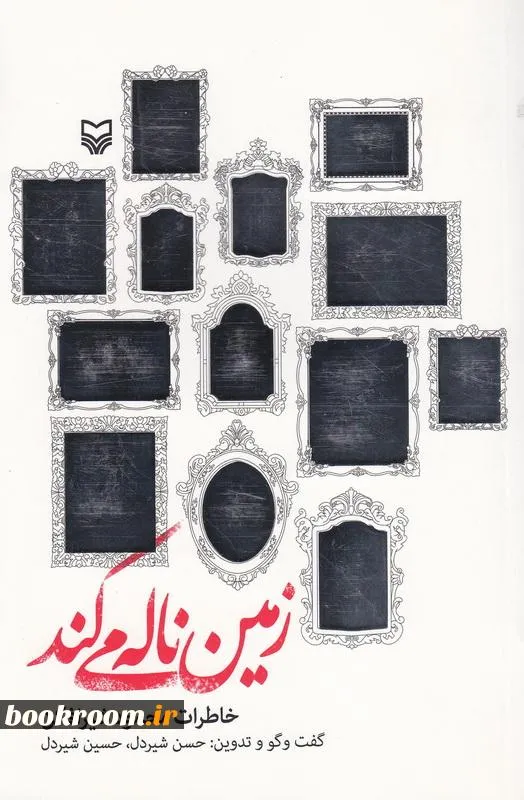 زمین ناله می‌کند
خاطرات
گفت وگو و تدوین: حسن شیردل، حسین شیردل
bookroom.ir